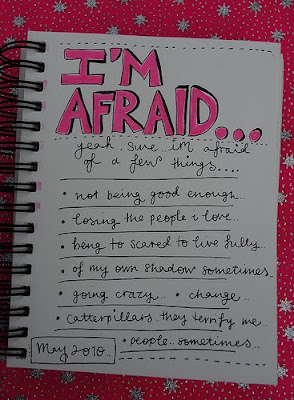 I'M
AFRAID...
yeah, sure.. i'm afraid
of a few things....
• not being good enough..
• losing the people i love..
• beng to scared to live fully..
• of my own shadow sometimes
• going crazy... • change..
• catterpillars..they terrify me..
May 2010..
• people..sometimes..